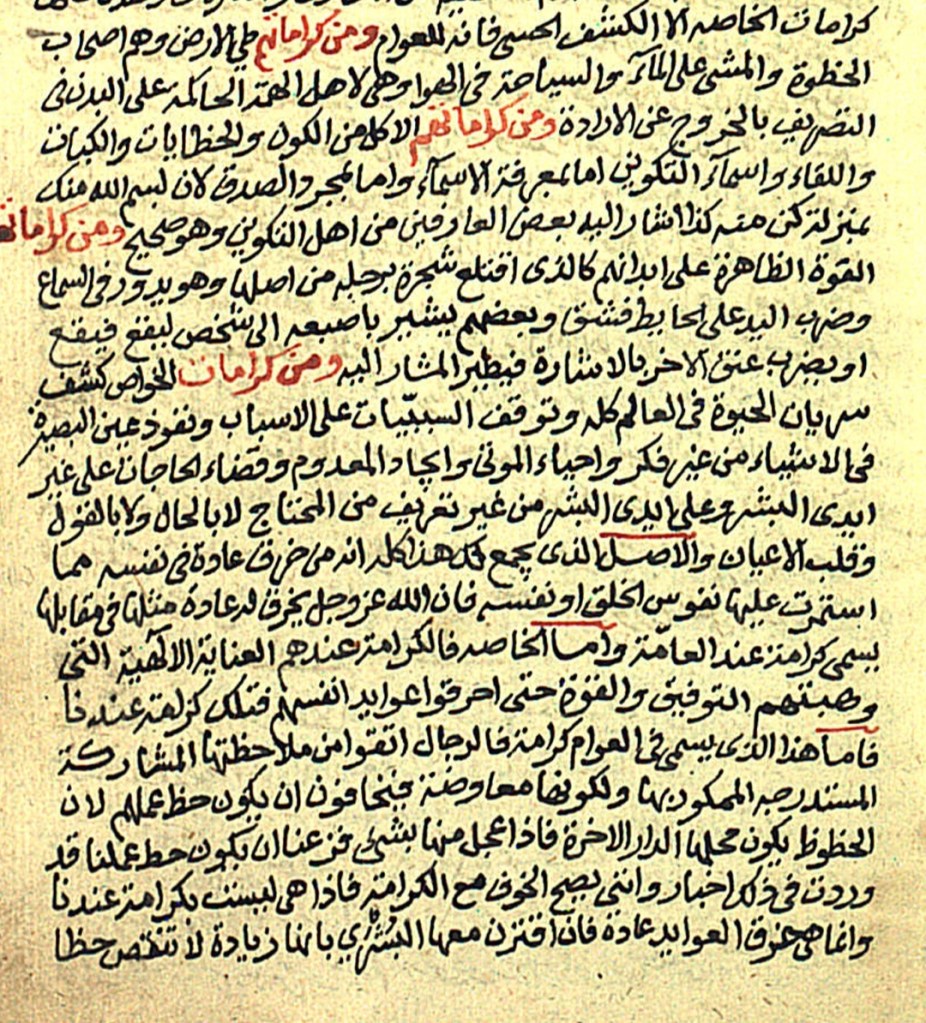 كرامات الخاصه الا الكشف الحسى فانه للعوام ومن كراماتهم طي الارض وهم اصحاب
الخطوة والمشى على المآء والسياحة في الهوا وهى لاهل الهمة الحاكمة على البدن فى
التصريف بالخروج عن الارادة ومن كراماتهم الاكل من الكون والخطابات والكتبات
واللقاء واسمآء التكوين اما بمعرفة الاسمآء واما بمجرد الصدق لان بسم الله منك
بمنزلة كن منه كذا اشار اليه بعض العارفين من اهل التكوين وهو صحيح ومن كراماتهم
القوة الظاهرة على ابدانهم كالذى اقتلع شجرة برجله من اصلها وهو يدور فى السماع
وضرب اليد على الحايط فشق وبعضهم يشير باصبعه الى شخص ليقع فيقع
او يضرب عنق الاخر بالاشارة فيطير المشار اليه ومن كرامات الخواص كشف
سريان الحيوة فى العالم كله وتوقف السببيات على الاسباب ونفوذ عين البصيرة
فى الاشياء من غير فكر واحياء الموتى وايجاد المعدوم وقضاء الحاجات على غير
ايدى البشر وعلى ايدى البشر من غير تعريف من المحتاج لا بالحال ولا بالقول
وقلب الاعيان والاصل الذى يجمع لك هذا كله انه من خرق عادة فى نفسه مما
استمرت عليها نفوس الخلق او نفسه فان الله عز وجل يخرق له عادة مثلها فى مقابلها
يسمى كرامة عند العامة واما الخاصه فالكرامة عندهم العناية الالهية التى
وهبتهم التوفيق والقوة حتى اخرقوا عوايد انفسهم فتلك كرامة عندنا
فاما هذا الذى يسمى فى العوام كرامة فالرجال اتقوا من ملاحظتها المشاركة
المستدرجه الممكور بها ولكونها معاوضة فيخافون ان يكون حظ عملهم لان
الحظوظ يكون محلها الدار الاخرة فاذا عجل منها بشئ فزعنا ان يكون حظ عملنا قد
وردت فى ذلك اخبار وانى يصح الخوف مع الكرامة فاذا هى ليست بكرامة عندنا
وانما هى خرق العوايد عادة فان اقترن معها البشرى بانها زيادة لا تنقص حظا